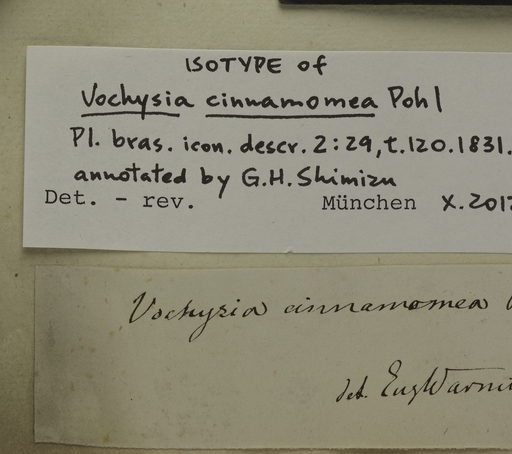 ISOTYPE of
Vochysia cinnamomea Pohl
Pl. bras. icon. descr. 2:29, t.120.1831.
annotated by G.H. Shimizu
Det. - rev. München X.201
Vochysia cinnamomea
det. Eug Warmi